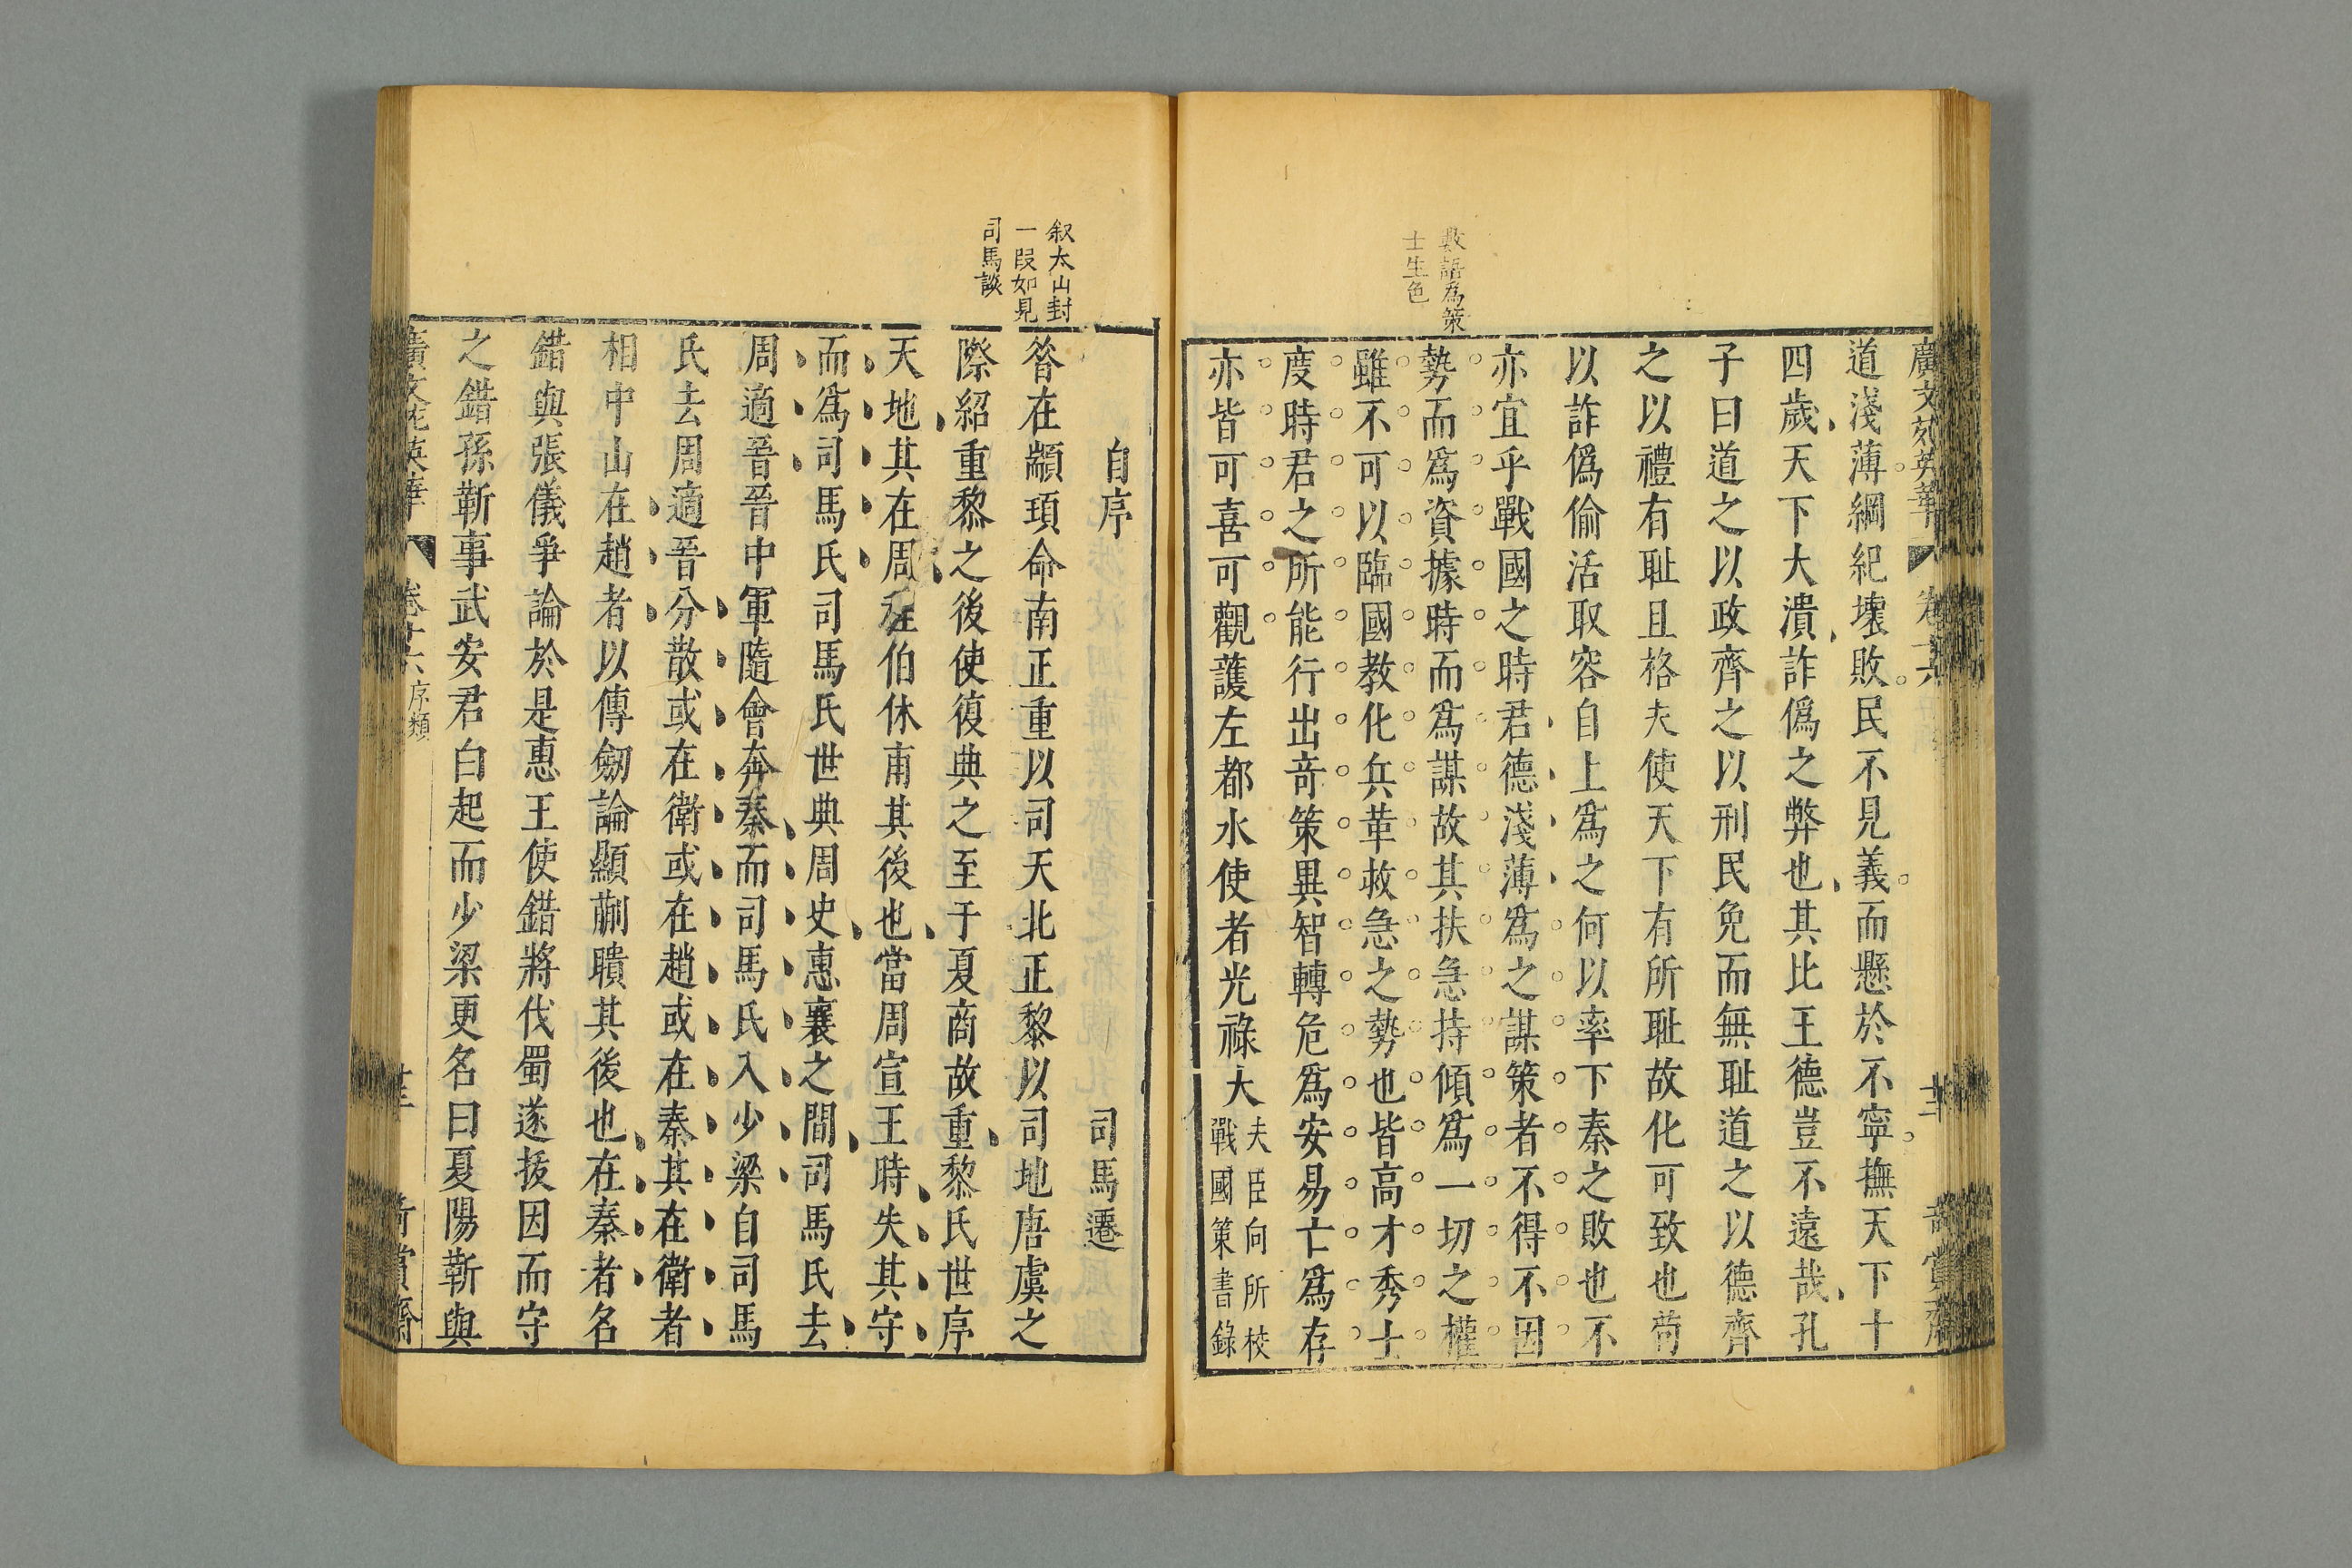 廣文苑英華 卷十六
賞齋
道淺薄綱紀壞敗民不見義而懸於不寧撫天下十
四歲天下大潰詐僞之弊也其比王德豈不遠哉孔
子曰道之以政齊之以刑民免而無耻道之以德齊
之以禮有耻且格夫使天下有所耻故化可致也苟
以詐僞偷活取容自上爲之何以率下秦之敗也不
亦宜乎戰國之時君德淺薄爲之謀策者不得不因
勢而爲資據時而爲謀故其扶急持傾爲一切之權
雖不可以臨國教化兵革救急之勢也皆高才秀士
度時君之所能行出竒策異智轉危爲安易亡爲存
亦皆可喜可觀護左都水使者光祿大
夫臣向所校
戰國策書錄
數語為策
士生色
自序
司馬遷
叙太山封
一段如見
司馬談
昝在顓頊命南正重以司天北正黎以司地唐虞之
際紹重黎之後使復典之至于夏商故重黎氏世序
天地其在周程伯休甫其後也當周宣王時失其守
而爲司馬氏司馬氏世典周史惠襄之間司馬氏去
周適晉晉中軍隨會奔秦而司馬氏入少梁自司馬
氏去周適晉分散或在衛或在趙或在秦其在衛者
相中山在趙者以傳劒論顯蒯聵其後也在秦者名
錯與張儀爭論於是惠王使錯將伐蜀遂拔因而守
之錯孫靳事武安君白起而少梁更名曰夏陽靳與
廣文苑英華 卷十六 序類
賞齋